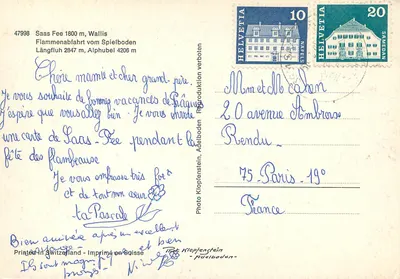 47998 Saas Fee 1800 m, Wallis
Flammenabfahrt vom Spielboden
Längfluh 2847 m, Alphubel 4206 m
10
HELVETIA
20
SAMEDAN
Chère mamie et cher grand-père.
Je vous souhaite de bonnes vacances de Pâques
J'espère que vous allez bien. Je vous envoie
une carte de Saas-Fée pendant la
fête des flambeaux
Je vous embrasse très fort
et de tout mon cœur
ta Pascale
Bien arrivée après un excellent
voyage et ben
Ils sont
Photo Klopfenstein, Adelboden Reproduktion verboten
Mr et Me Cahen
20 avenue Ambroise
Rendu
75-Paris-19°
France
Printed in Switzerland - Imprimé en Suisse
Photo Klopfenstein
Adelboden